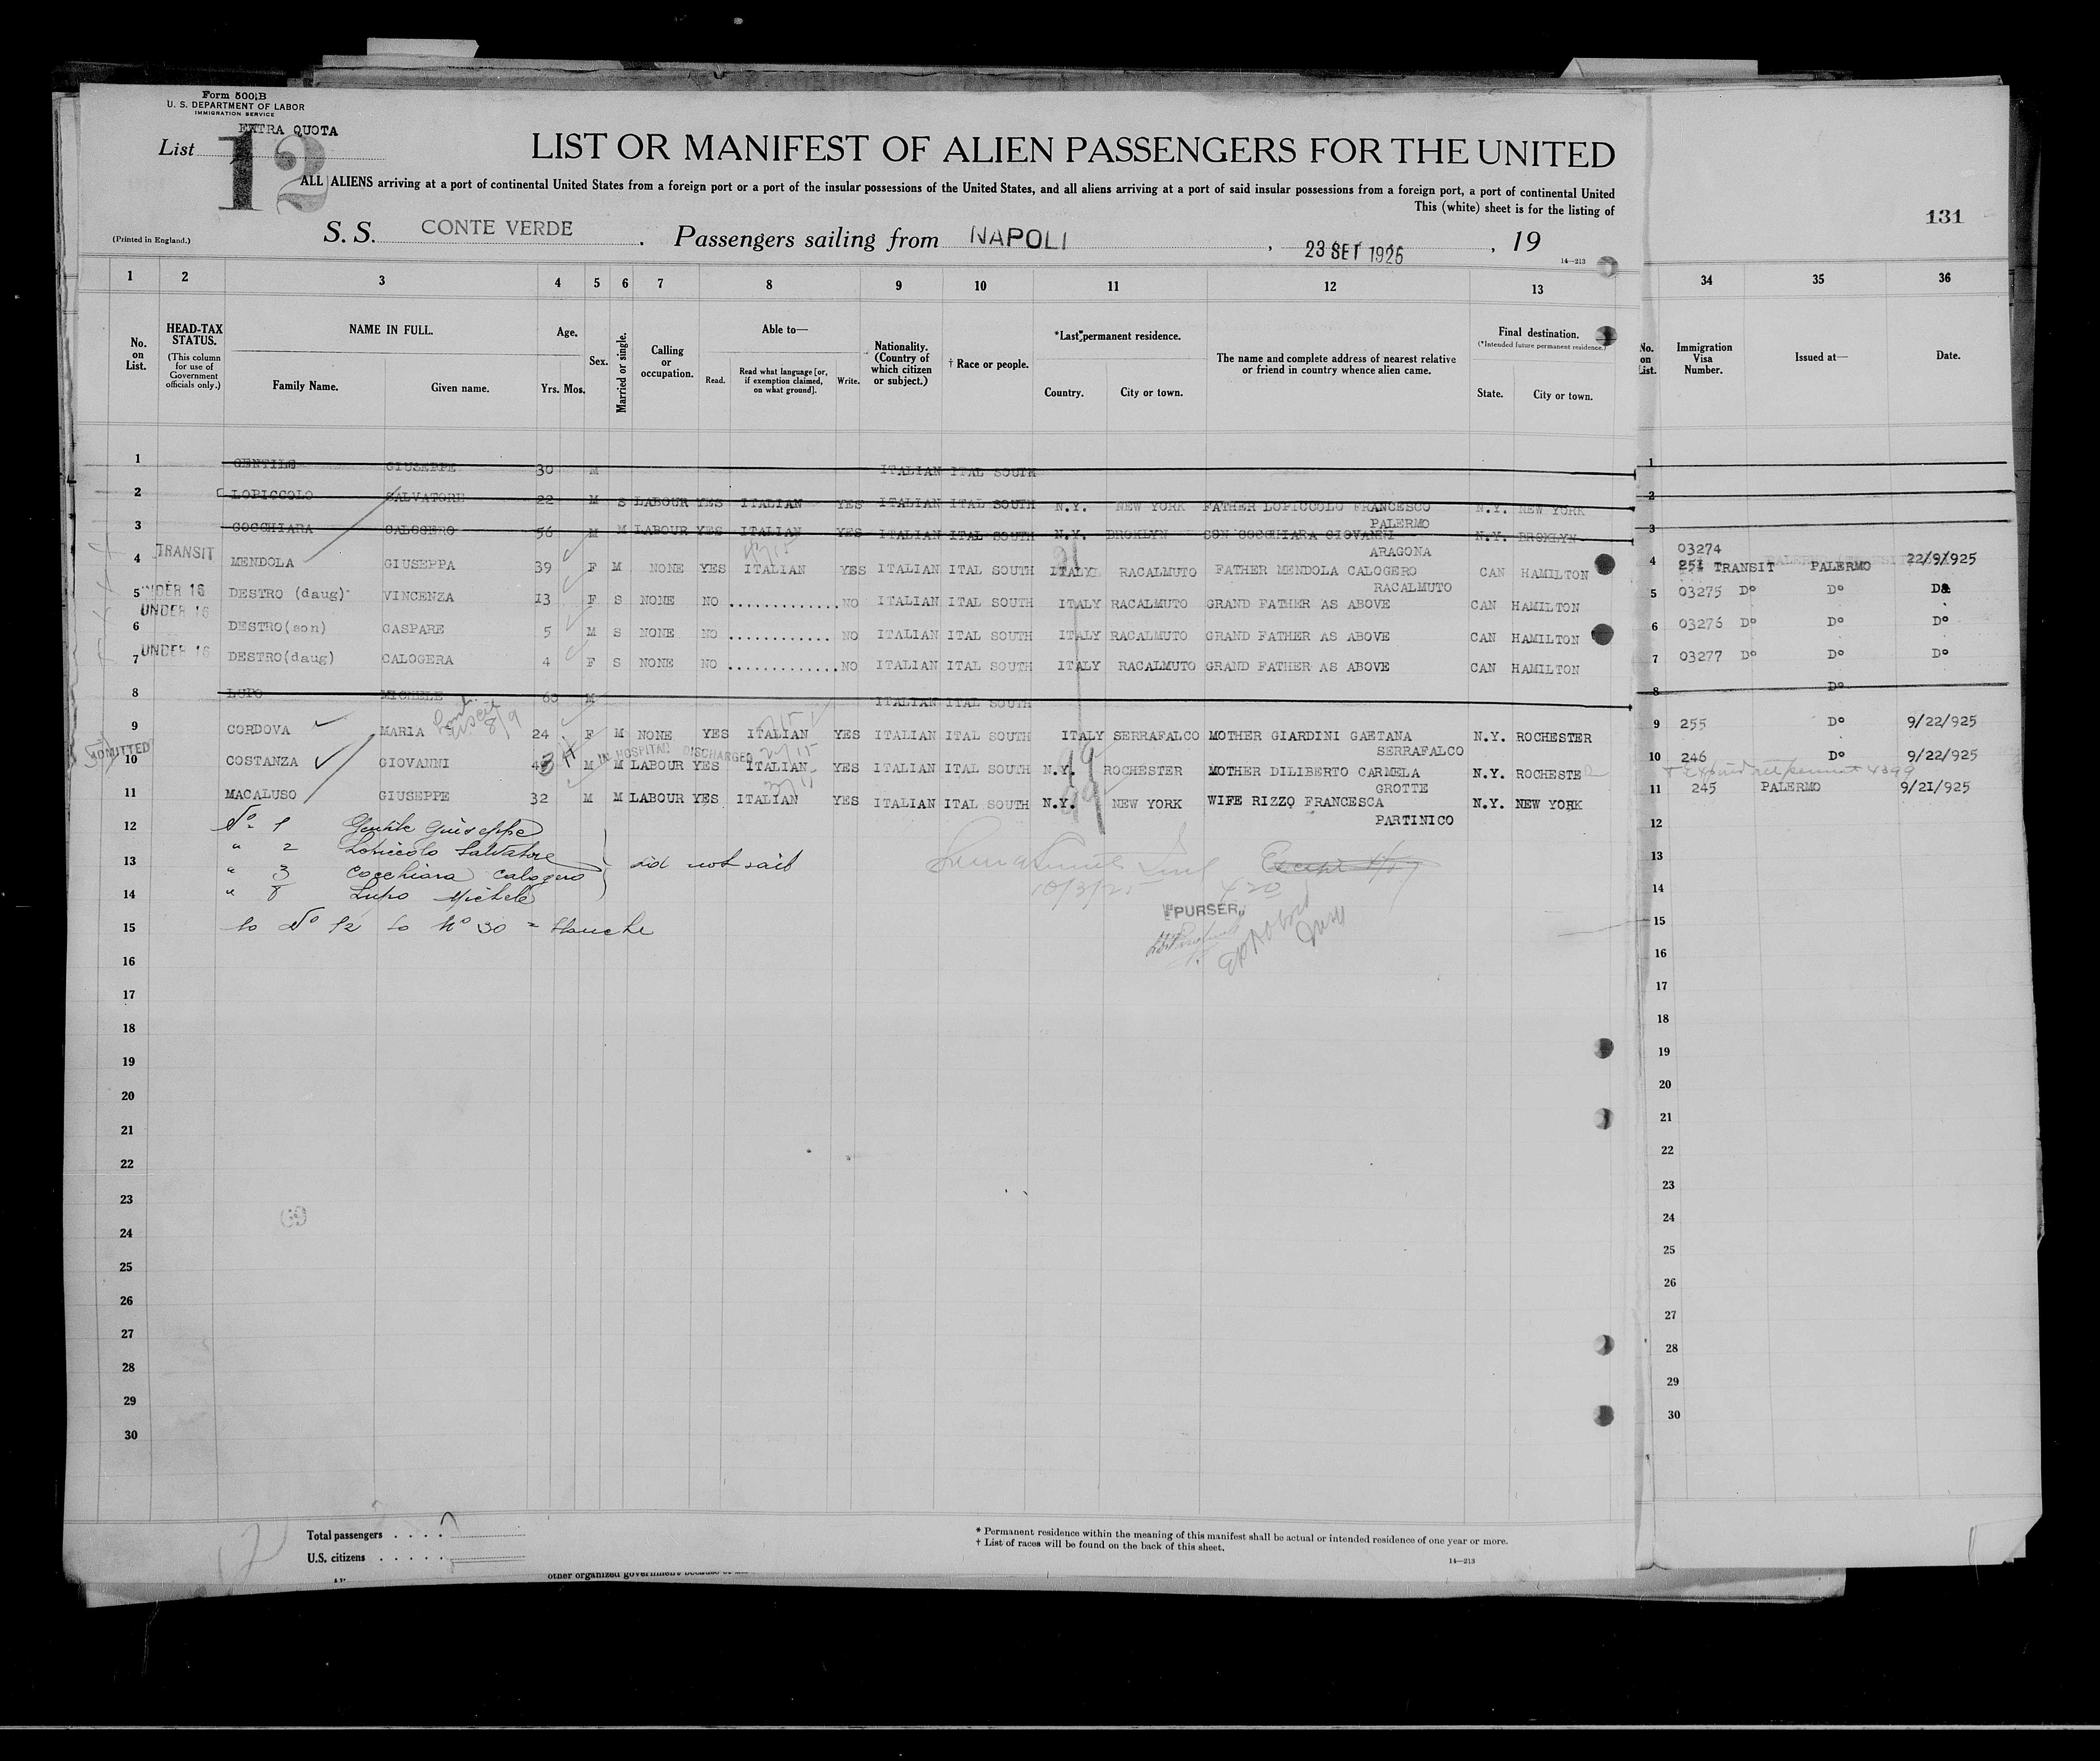 Form 500 B
U. S. DEPARTMENT OF LABOR
IMMIGRATION SERVICE
EXTRA QUOTA
List 12
LIST OR MANIFEST OF ALIEN PASSENGERS FOR THE UNITED
ALL ALIENS arriving at a port of continental United States from a foreign port or a port of the insular possessions of the United States, and all aliens arriving at a port of said insular possessions from a foreign port, a port of continental United
This (white) sheet is for the listing of
131
(Printed in England.)
S. S. CONTE VERDE. Passengers sailing from NAPOLI, 23 SET 1925, 19
14—213
1 2 3 4 5 6 7 8 9 10 11 12 13 34 35 36
No. on List.
HEAD-TAX STATUS.
(This column for use of Government officials only.)
NAME IN FULL.
Family Name. Given name.
Age.
Yrs. Mos.
Sex.
Married or single.
Calling or occupation.
Able to—
Read. Read what language [or, if exemption claimed, on what ground]. Write.
Nationality. (Country of which citizen or subject.)
† Race or people.
*Last permanent residence.
Country. City or town.
The name and complete address of nearest relative or friend in country whence alien came.
Final destination.
(*Intended future permanent residence.)
State. City or town.
No. on List.
Immigration Visa Number.
Issued at—
Date.
1 GENTILE GIUSEPPE 30 M ITALIAN ITAL SOUTH 1
2 LOPICCOLO SALVATORE 22 M S LABOUR YES ITALIAN YES ITALIAN ITAL SOUTH N.Y. NEW YORK FATHER LOPICCOLO FRANCESCO N.Y. NEW YORK 2
PALERMO
3 COCCHIARA CALOGERO 56 M M LABOUR YES ITALIAN YES ITALIAN ITAL SOUTH N.Y. BROKLYN SON COCCHIARA GIOVANNI N.Y. BROKLYN 3
ARAGONA
03274
4 TRANSIT MENDOLA GIUSEPPA 39 F M NONE YES ITALIAN YES ITALIAN ITAL SOUTH ITALY RACALMUTO FATHER MENDOLA CALOGERO CAN HAMILTON 4 251 TRANSIT PALERMO 22/9/925
RACALMUTO
5 UNDER 16 DESTRO (daug) VINCENZA 13 F S NONE NO NO ITALIAN ITAL SOUTH ITALY RACALMUTO GRAND FATHER AS ABOVE CAN HAMILTON 5 03275 Do Do Do
6 UNDER 16 DESTRO(son) GASPARE 5 M S NONE NO NO ITALIAN ITAL SOUTH ITALY RACALMUTO GRAND FATHER AS ABOVE CAN HAMILTON 6 03276 Do Do Do
7 UNDER 16 DESTRO(daug) CALOGERA 4 F S NONE NO NO ITALIAN ITAL SOUTH ITALY RACALMUTO GRAND FATHER AS ABOVE CAN HAMILTON 7 03277 Do Do Do
8 LUPO MICHELE 60 M ITALIAN ITAL SOUTH 8 Do
9 CORDOVA MARIA 24 F M NONE YES ITALIAN YES ITALIAN ITAL SOUTH ITALY SERRAFALCO MOTHER GIARDINI GAETANA N.Y. ROCHESTER 9 255 Do 9/22/925
SERRAFALCO
ADMITTED IN HOSPITAL DISCHARGED
10 COSTANZA GIOVANNI 43 M M LABOUR YES ITALIAN YES ITALIAN ITAL SOUTH N.Y. ROCHESTER MOTHER DILIBERTO CARMELA N.Y. ROCHESTER 10 246 Do 9/22/925
GROTTE
11 MACALUSO GIUSEPPE 32 M M LABOUR YES ITALIAN YES ITALIAN ITAL SOUTH N.Y. NEW YORK WIFE RIZZO FRANCESCA N.Y. NEW YORK 11 245 PALERMO 9/21/925
PARTINICO
12 No 1 Gentile Giuseppe 12
" 2 Lopiccolo Salvatore
13 " 3 Cocchiara Calogero did not sail 13
14 " 8 Lupo Michele 10/3/25 14
PURSER
15 to No 12 to No 30 = blanche 15
16 16
17 17
18 18
19 19
20 20
21 21
22 22
23 23
24 24
25 25
26 26
27 27
28 28
29 29
30 30
Total passengers
U.S. citizens
* Permanent residence within the meaning of this manifest shall be actual or intended residence of one year or more.
† List of races will be found on the back of this sheet.
14—213
other organized government because of